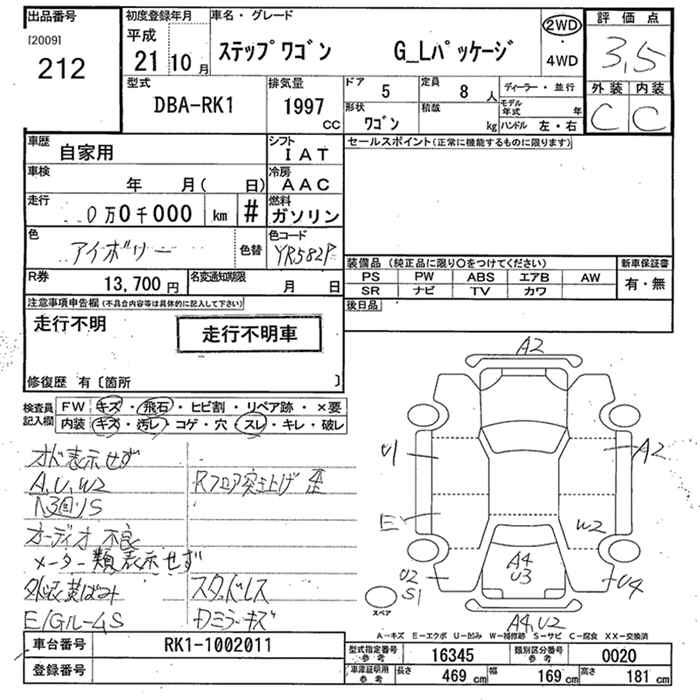 出品番号
[2009]
212
初度登録年月
平成
21 10 月
車名・グレード
ステップワゴン G_Lパッケージ
2WD
・
4WD
評価点
3.5
外装 内装
C C
型式
DBA-RK1
排気量
1997
CC
ドア
5
定員
8 人
形状
ワゴン
積載
kg
ディーラー・並行
モデル年式 年
ハンドル 左・右
車歴
自家用
シフト
IAT
車検
年 月( 日)
冷房
AAC
走行
0万0千000 km #
燃料
ガソリン
色
アイボリー
色替
色コード
YR582P
R券
13,700 円
名変通知期限
月 日
セールスポイント(正常に機能するものに限ります)
装備品(純正品に限り○をつけてください)
PS PW ABS エアB AW
SR ナビ TV カワ
新車保証書
有・無
後日品
注意事項申告欄(不具合内容等は具体的に記入して下さい)
走行不明
走行不明車
修復歴 有〔箇所 〕
検査員
記入欄
FW キズ・飛石・ヒビ割・リペア跡・×要
内装 キズ・汚レ・コゲ・穴・スレ・キレ・破レ
オド表示せず
A,U,W2
Rフロア突上げ 歪
オーディオ 不良
メーター類表示せず
外装黄ばみ
スタッドレス
E/GルームS
カミラーキズ
A2
U1
A2
E
W2
A4
U3
U2
S1
U4
A4,U2
スペア
A−キズ E−エクボ U−凹み W−補修跡 S−サビ C−腐食 XX−交換済
車台番号
RK1-1002011
登録番号
型式指定番号
参考
16345
類別区分番号
参考
0020
車庫証明用
参考
長さ
469 cm
幅
169 cm
高さ
181 cm